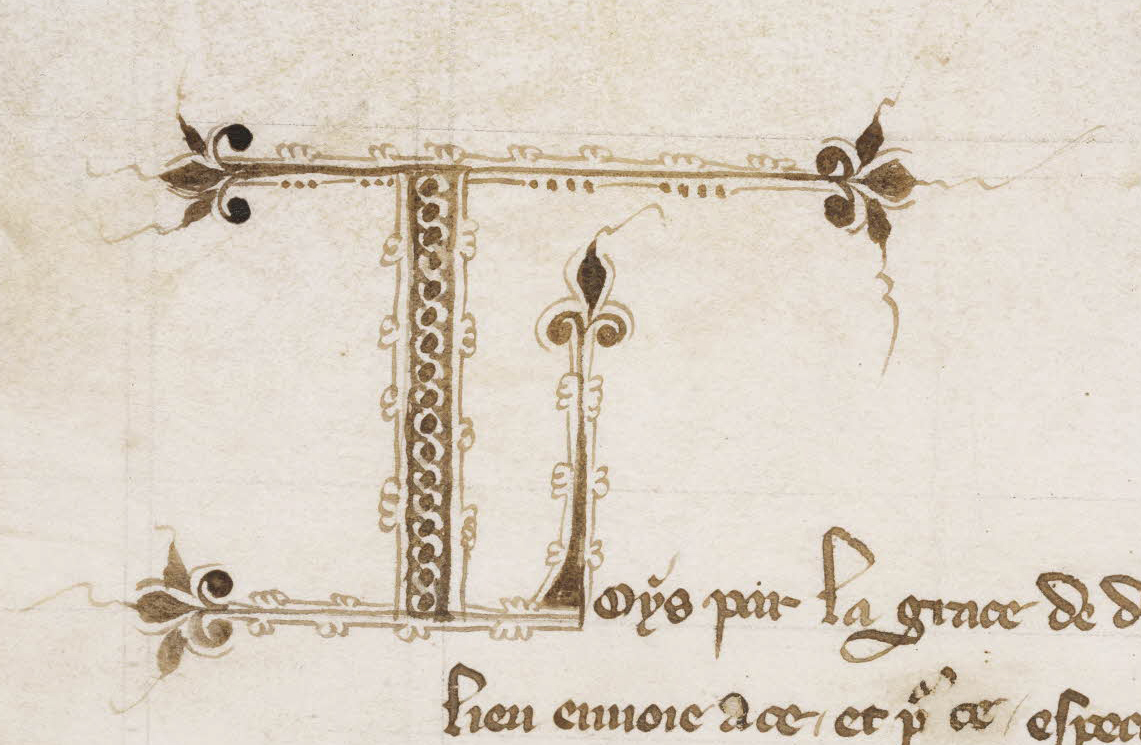 Loÿs par la grace de d
lieu enuoie a ce et pᵃ ce espec